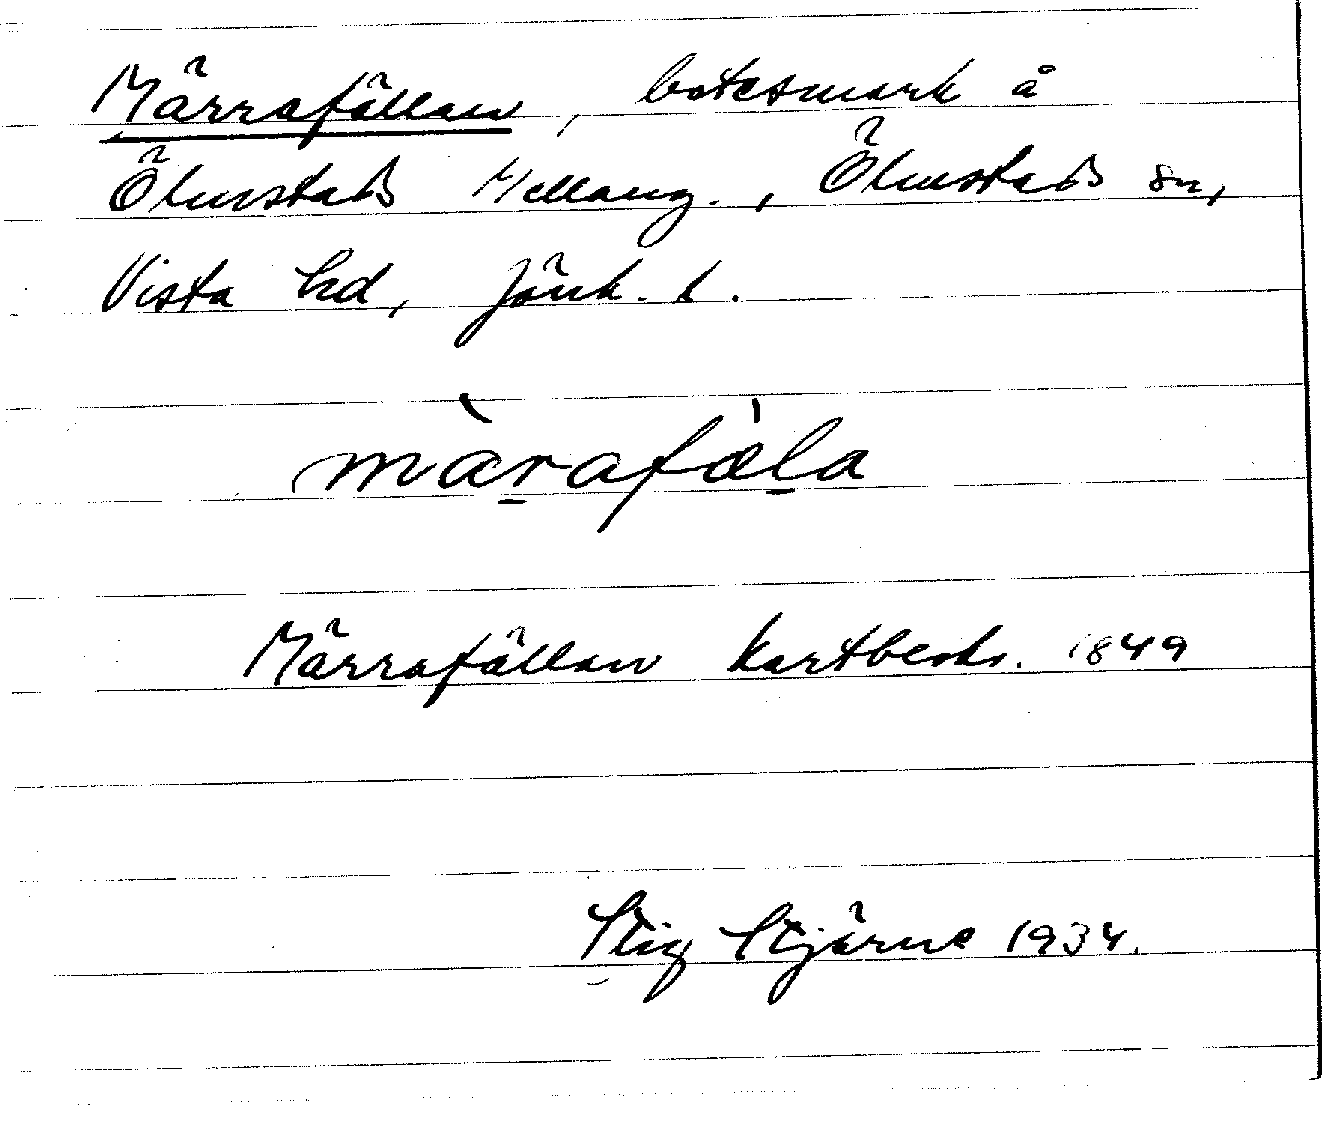 Märrafällan, betesmark å
Ölmstads Mellang., Ölmstads sn,
Vista hd, Jönk. l.
màrafæ̀la
Märrafällan kartbeskr. 1849
Stig Stjärne 1934.